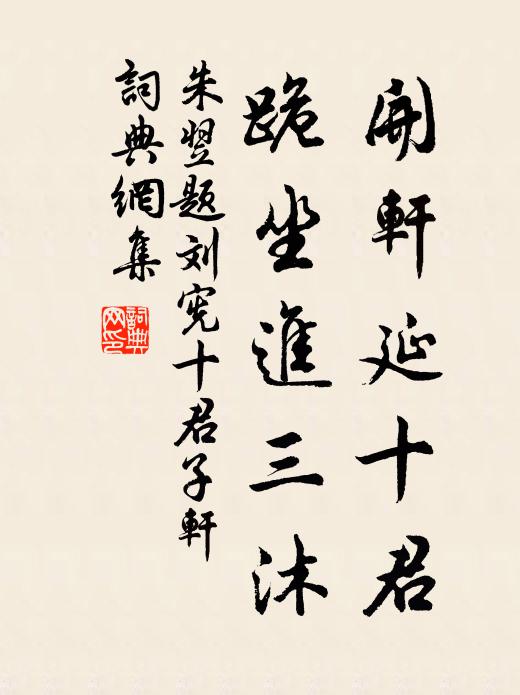 開軒延十君
跪坐進三沐
朱翌題刘宪十君子軒
詞典網集
詞典網印